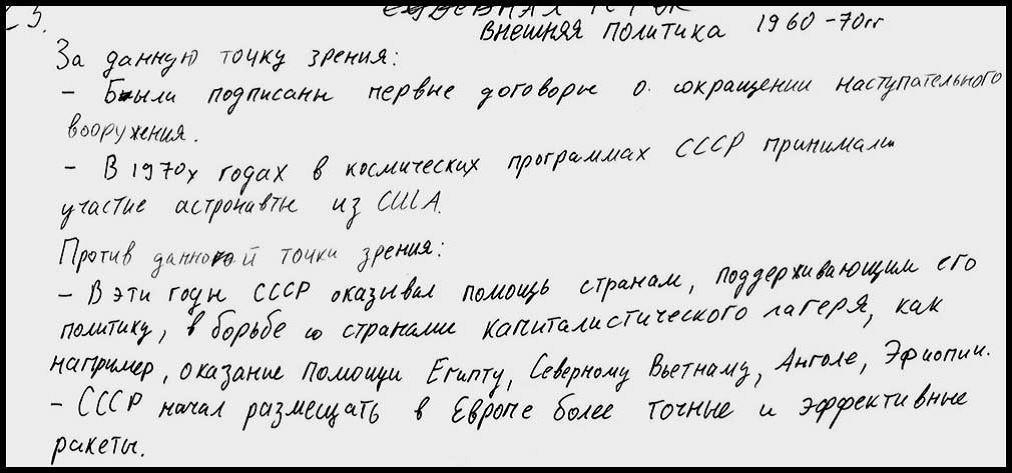 С5.
внешняя политика 1960-70гг
За данную точку зрения:
- Были подписаны первые договоры о сокращении наступательного
вооружения.
- В 1970х годах в космических программах СССР принимали
участие астронавты из США.
Против данной точки зрения:
- В эти годы СССР оказывал помощь странам, поддерживающим его
политику, в борьбе со странами капиталистического лагеря, как
например, оказание помощи Египту, Северному Вьетнаму, Анголе, Эфиопии.
- СССР начал размещать в Европе более точные и эффективные
ракеты.